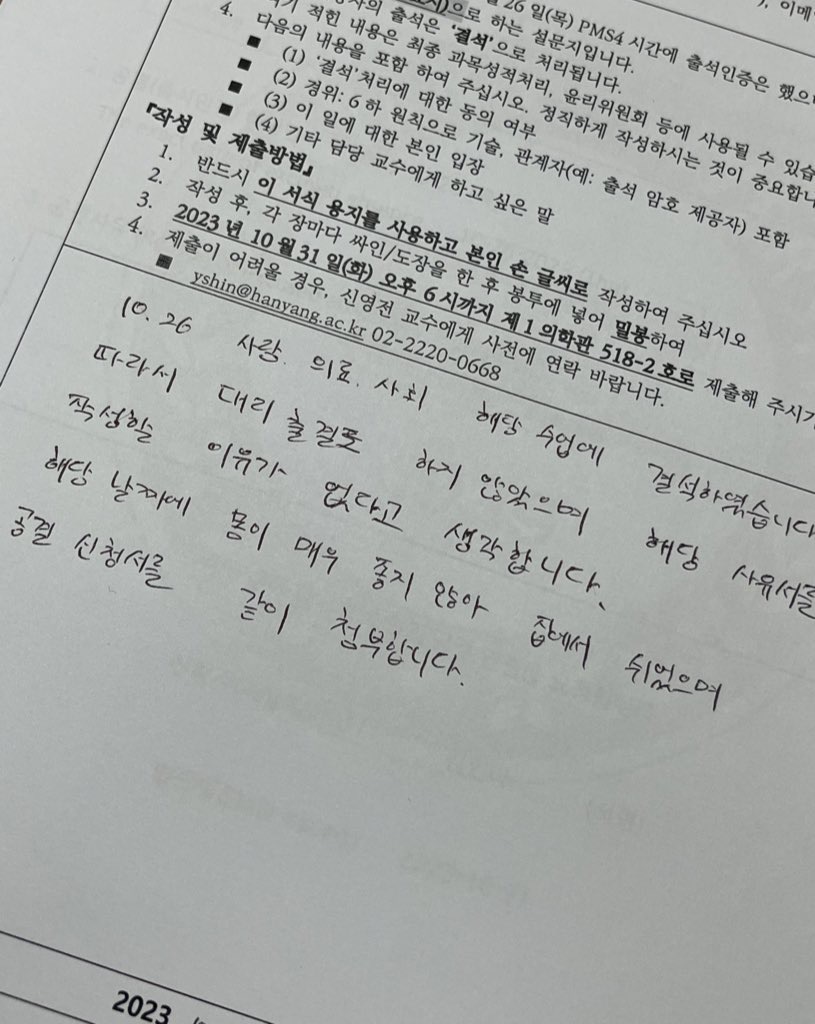 ), 이메
26일(목) PMS4 시간에 출석인증은 했으
으로 하는 설문지입니다.
의 출석은 '결석'으로 처리됩니다.
적힌 내용은 최종 과목성적처리, 윤리위원회 등에 사용될 수 있습
4. 다음의 내용을 포함 하여 주십시오. 정직하게 작성하시는 것이 중요합니
■ (1) '결석'처리에 대한 동의 여부
■ (2) 경위: 6하 원칙으로 기술, 관계자(예: 출석 암호 제공자) 포함
■ (3) 이 일에 대한 본인 입장
■ (4) 기타 담당 교수에게 하고 싶은 말
『작성 및 제출방법』
1. 반드시 이 서식 용지를 사용하고 본인 손 글씨로 작성하여 주십시오
2. 작성 후, 각 장마다 싸인/도장을 한 후 봉투에 넣어 밀봉하여
3. 2023년 10월 31일(화) 오후 6시까지 제1의학관 518-2호로 제출해 주시기
4. 제출이 어려울 경우, 신영전 교수에게 사전에 연락 바랍니다.
■ yshin@hanyang.ac.kr 02-2220-0668
10. 26 사람. 의료. 사회 해당 수업에 결석하였습니다
따라서 대리 출결도 하지 않았으며 해당 사유서를
작성할 이유가 없다고 생각합니다.
해당 날짜에 몸이 매우 좋지 않아 집에서 쉬었으며
공결 신청서를 같이 첨부합니다.
2023